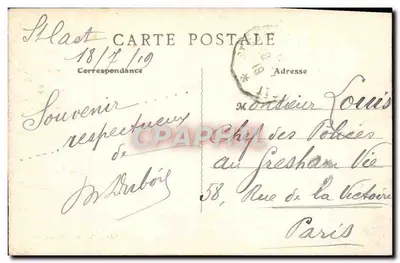 St Cast
18/7/19
CARTE POSTALE
Correspondance
Adresse
Souvenir
respectueux
de
M Dubois
Monsieur Louis
des Polices
au Gresham Vie
58, Rue de la Victoire
Paris
CPARAMA